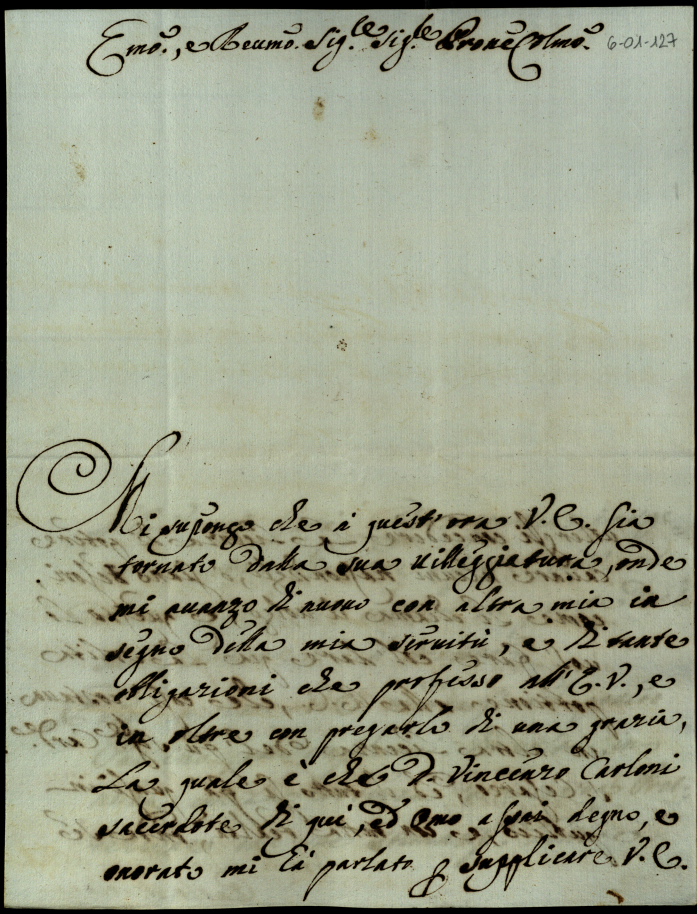 Emo., e Reumo. Sig.le Sig.le Prone Colmo. 6-01-127
Mi supongo che à quest'ora V. E. sia
tornato dalla sua uilleggiatura, onde
mi auanzo di nuouo con altra mia in
segno della mia seruitù, e di tante
obligazioni che professo all'E. V., e
in oltre con pregarlo di una grazia,
La quale è che D. Vincenzo Carloni
sacerdote di qui, ed omo assai degno, e
onorato mi hà parlato p supplicare V. E.